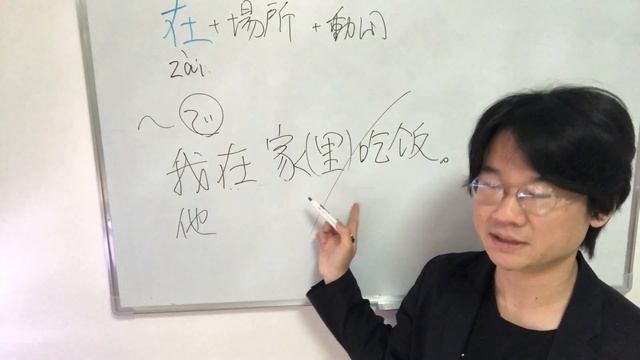 在+場所+動詞
zài
~で
我在家(里)吃饭。
他